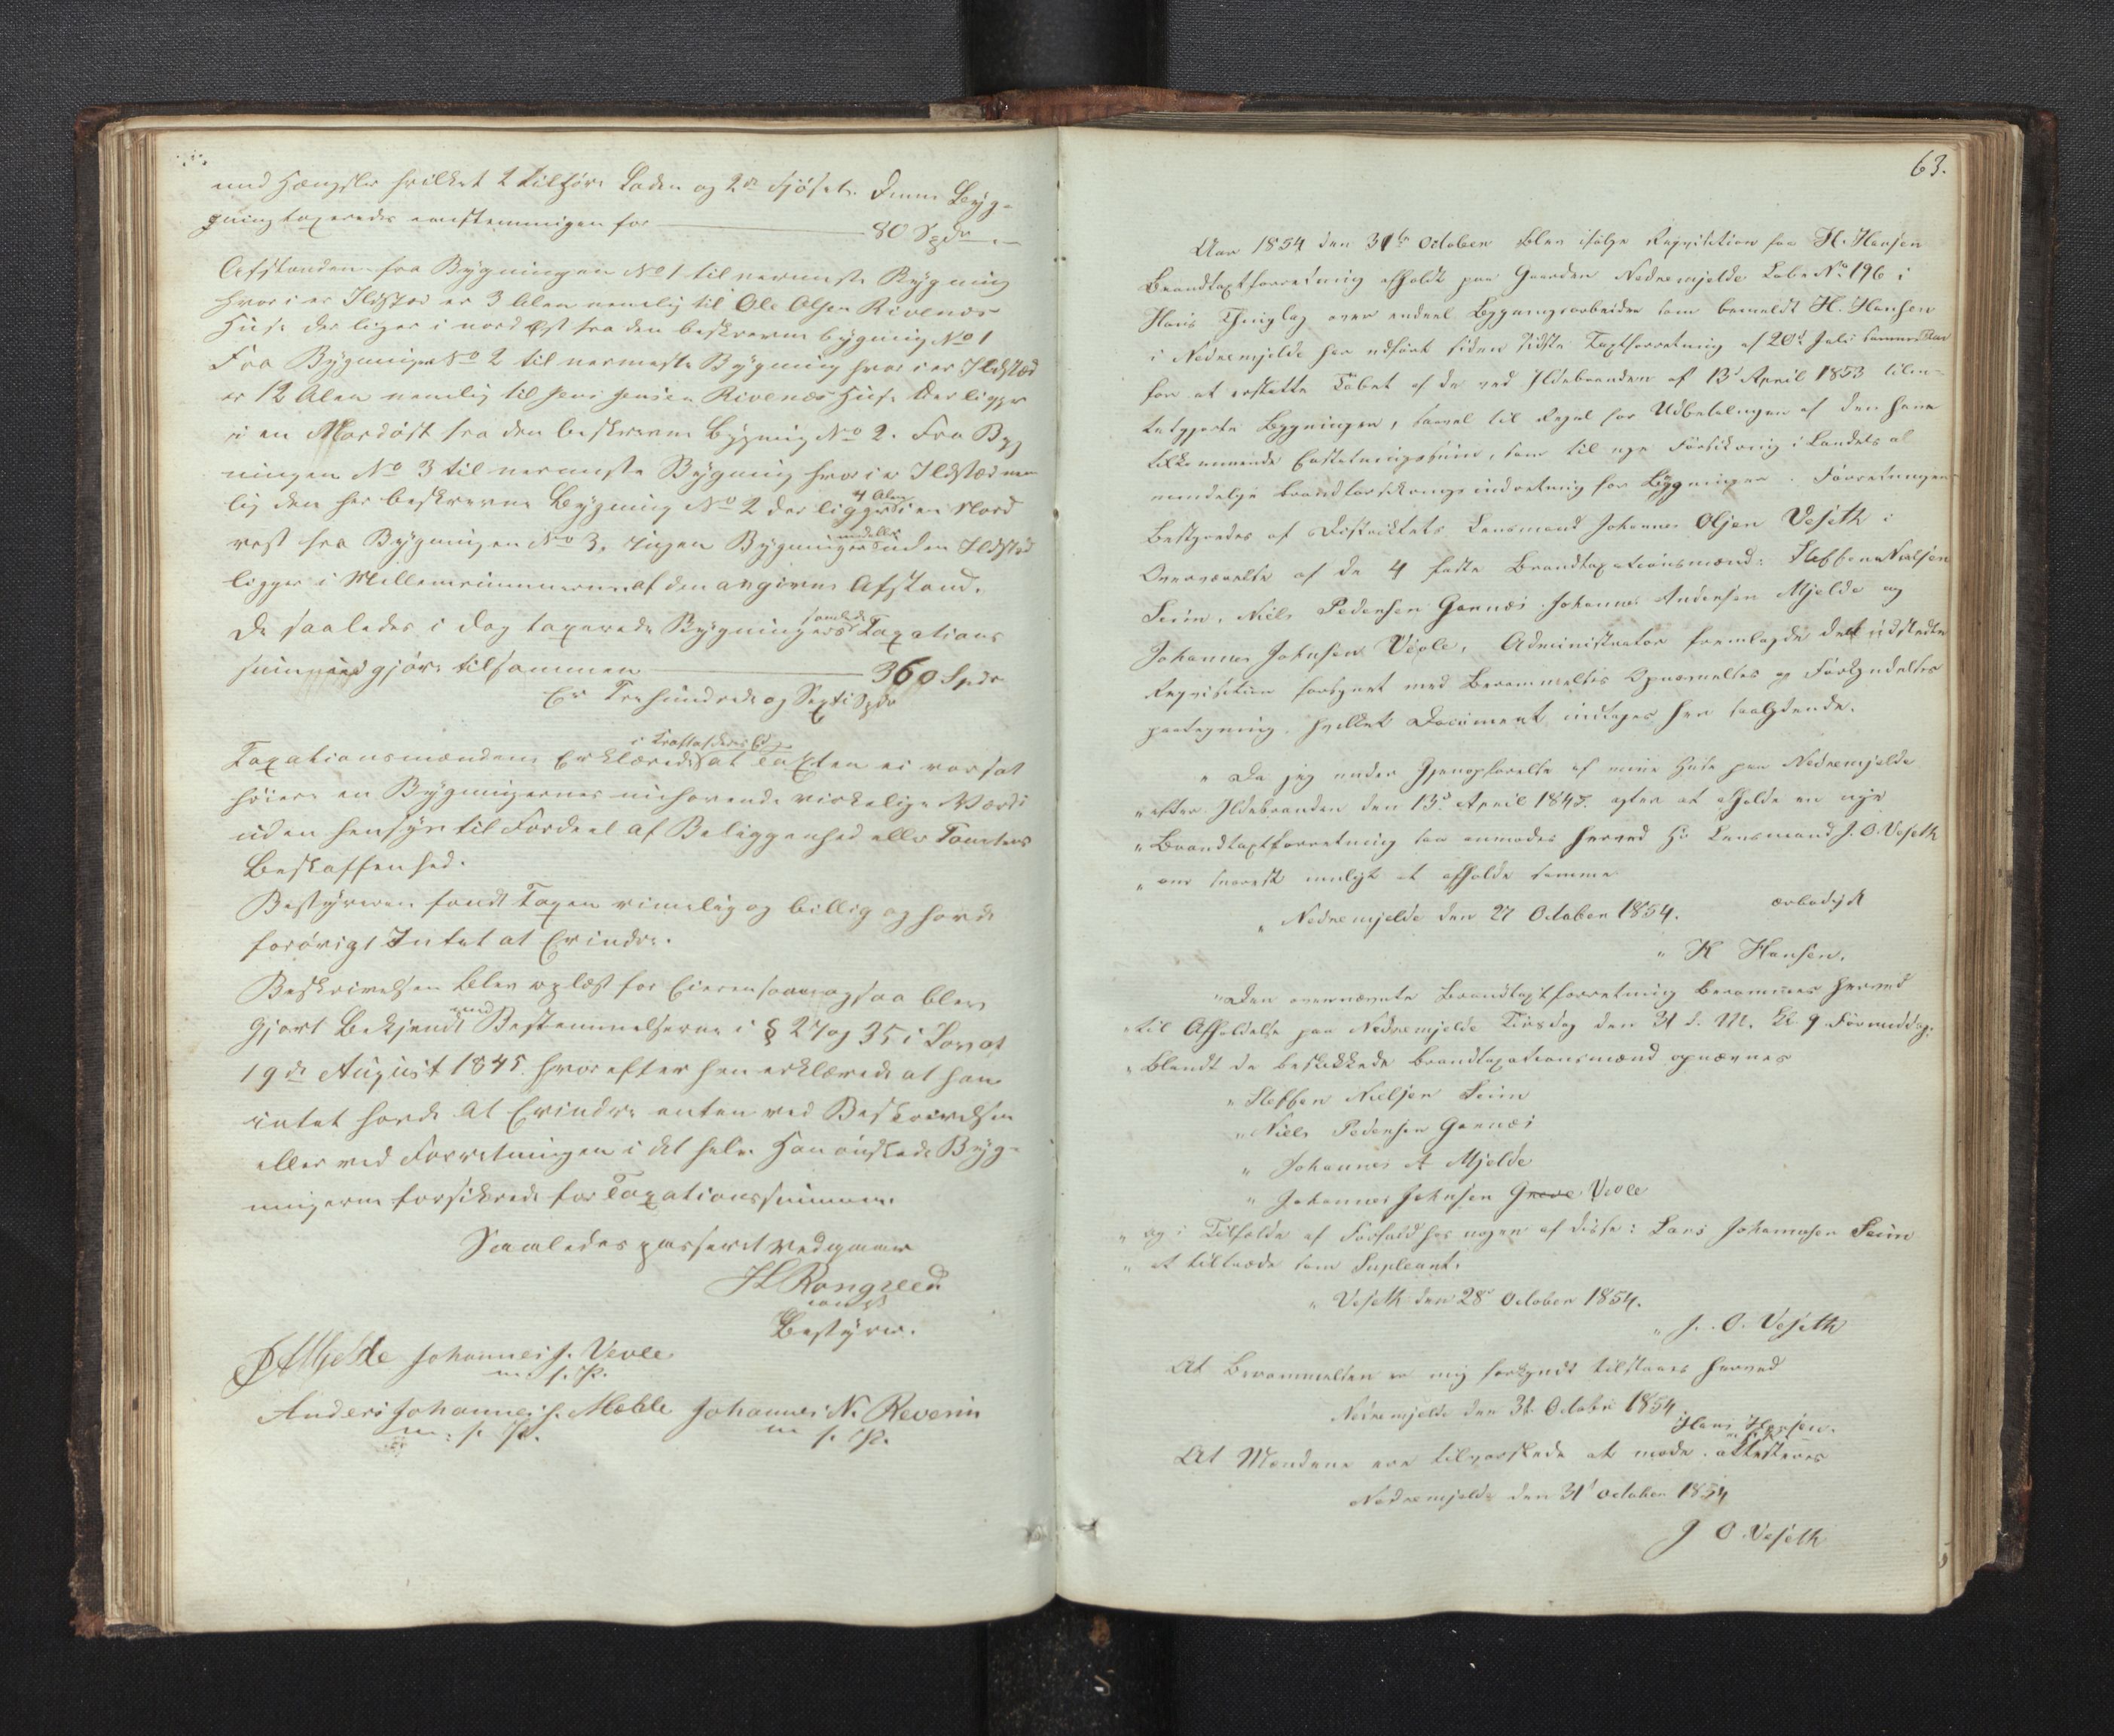 med Hængsler hvilket 1 tilhører Laden og 2de Fjöset. Denne Byg-
gning taxeredes eenstemmigen for 80 Spdr
Afstanden fra Bygningen No 1 til nermeste Bygning
hvor i er Ildsted er 3 Alen nemelig til Ole Olsen Rivenæs
Huse der liger i nord Øst fra den beskrevne bygning No 1
Fra Bygningen No 2 til nermeste Bygning hvor i er Ildsted
er 12 Alen nemlig til Jens Jensen Rivenæs Huse der ligger
i en Nordöst fra den beskrevne Bygning No 2. Fra Byg
ningen No 3 til nermeste Bygning hvor i er Ildsted nem
lig den her beskrevne Bygning No 2 der ligger 4 Alen i en Nord
vest fra Bygningen No 3, Ingen Bygninger uden Ildsted
ligger i Mellemrummerne af den angivne Afstand.
De saaledes i dag taxerede Bygningers samlede Taxations
summer gjöre tilsammen 360 Spdr
Er Trehundrede og Sexti Spdr
Taxationsmændene Erklærede i Kraft af deres Ed at Taxten ei var sat
höiere en Bygningernes nuhavende virkelige Værdi
uden hensyn til Fordeel af Beliggenhed eller Tomtens
Beskaffenhed.
Bestyreren fandt Taxen rimelig og billig og havde
forövrigt Intet at Erindre.
Beskrivelsen blev oplæst for Eieren som ogsaa blev
gjort Bekjendt med Bestemmelserne i § 27 og 35 i Lov af
19de August 1845. hvorefter han erklærede at han
intet havde at Erindre enten ved Beskrivelsen
eller ved Forretningen i det hele. Han önskede Byg-
ningerne forsikrede for Taxationssummen.
Saaledes passeret vedgaaer
H Rongved
const
Bestyrer.
J A Mjelde Johannes J. Vevle
m. f. P.
Anders Johannes J. Mæhle Johannes N. Reverin
m. f. P. m f. P.
63.
Aar 1854 den 31te October blev ifölge Requisition fra H. Hansen
Brandtaxtforretning afholdt paa Gaarden Nedremjelde Lobe No 196 i
Haus Thinglag over endeel Bygningsarbeider som bemeldt H. Hansen
i Nedremjelde har udfört siden sidste Taxtforretning af 20d Juli samme Aar
for at erstatte Tabet af de ved Ildebranden af 13d April 1853 tilin-
tetgjorte Bygninger, saavel til Regel for Udbetalingen af den ham
tilkommende Erstatningssum, som til nye Forsikring i Landets al
mindelige Brandforsikringsindretning for Bygninger. Forretningen
bestyredes af Districtets Lensmand Johannes Olsen Veseth i
Overværelse af de 4 faste Brandtaxationsmænd: Steffen Nielsen
Seim, Niels Pedersen Garnæs Johannes Andersen Mjelde og
Johannes Johnsen Vevle, Administrator fremlagde den udstedte
Requisition forsynet med Berammelses Opnævnelses og Forkyndelses
paategning, hvilket Document indtages her saalydende.
" Da jeg under Gjenopförelse af mine Huse paa Nedremjelde
" efter Ildebranden den 13d April 1845. agter at afholde en nye
" Brandtaxtforretning saa anmodes herved Hr Lensmand J. O. Veseth
" om snarest muligt at afholde samme
" Nedremjelde den 27 October 1854. ærbödigst
" H Hansen.
" Den ovennævnte Brandtaxtforretning berammes herved
" til Afholdelse paa Nedremjelde Tirsdag den 31 d. M. Kl. 9 Formiddag.
" Blandt de beskikkede Brandtaxationsmænd opnævnes
" Steffen Nielsen Seim
" Niels Pedersen Garnæs
" Johannes A Mjelde
" Johannes Johnsen Vevle
" og i Tilfælde af Forfald hos nogen af disse: Lars Johannesen Seim
" at tiltræde som Supleant.
" Veseth den 28d October 1854.
" J. O. Veseth
At Berammelsen er mig forkyndt tilstaaes herved
Nedremjelde den 31 Octobr 1854
Hans Hansen.
At Mændene ere tilvarslede at möde attesteres
Nedremjelde den 31d October 1854
J O Veseth